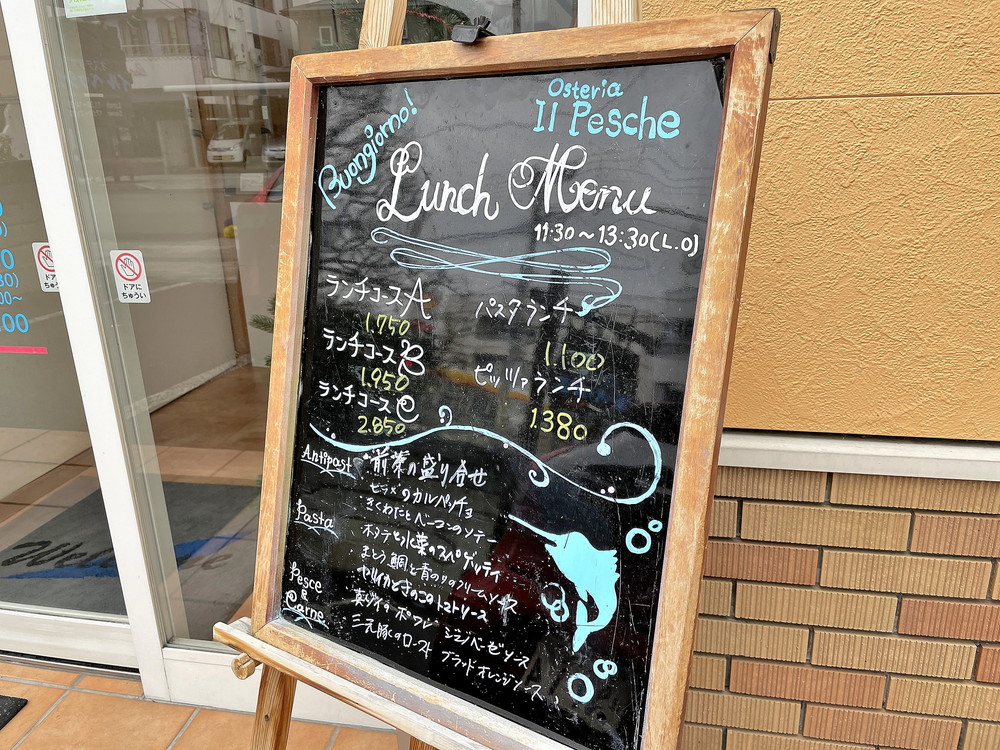 Osteria
Il Pesche
Buongiorno!
Lunch Menu
11:30～13:30(L.O)
ランチコースA
1.750
ランチコースB
1.950
ランチコースC
2.850
パスタランチ
1.100
ピッツァランチ
1.380
Antipast
・前菜の盛り合せ
・ヒラメのカルパッチョ
・きくわたとベーコンのソテー
Pasta
・ホタテと水菜のスパゲッティ
まとう鯛と青のりのクリームソース
ヤリイカときのこのトマトソース
Pesce
&
Carne
真ダイのポワレ ジェノベーゼソース
三元豚のロースト ブラッドオレンジソース
ドアに
ちゅうい
ドア
ちゅう
Welcome